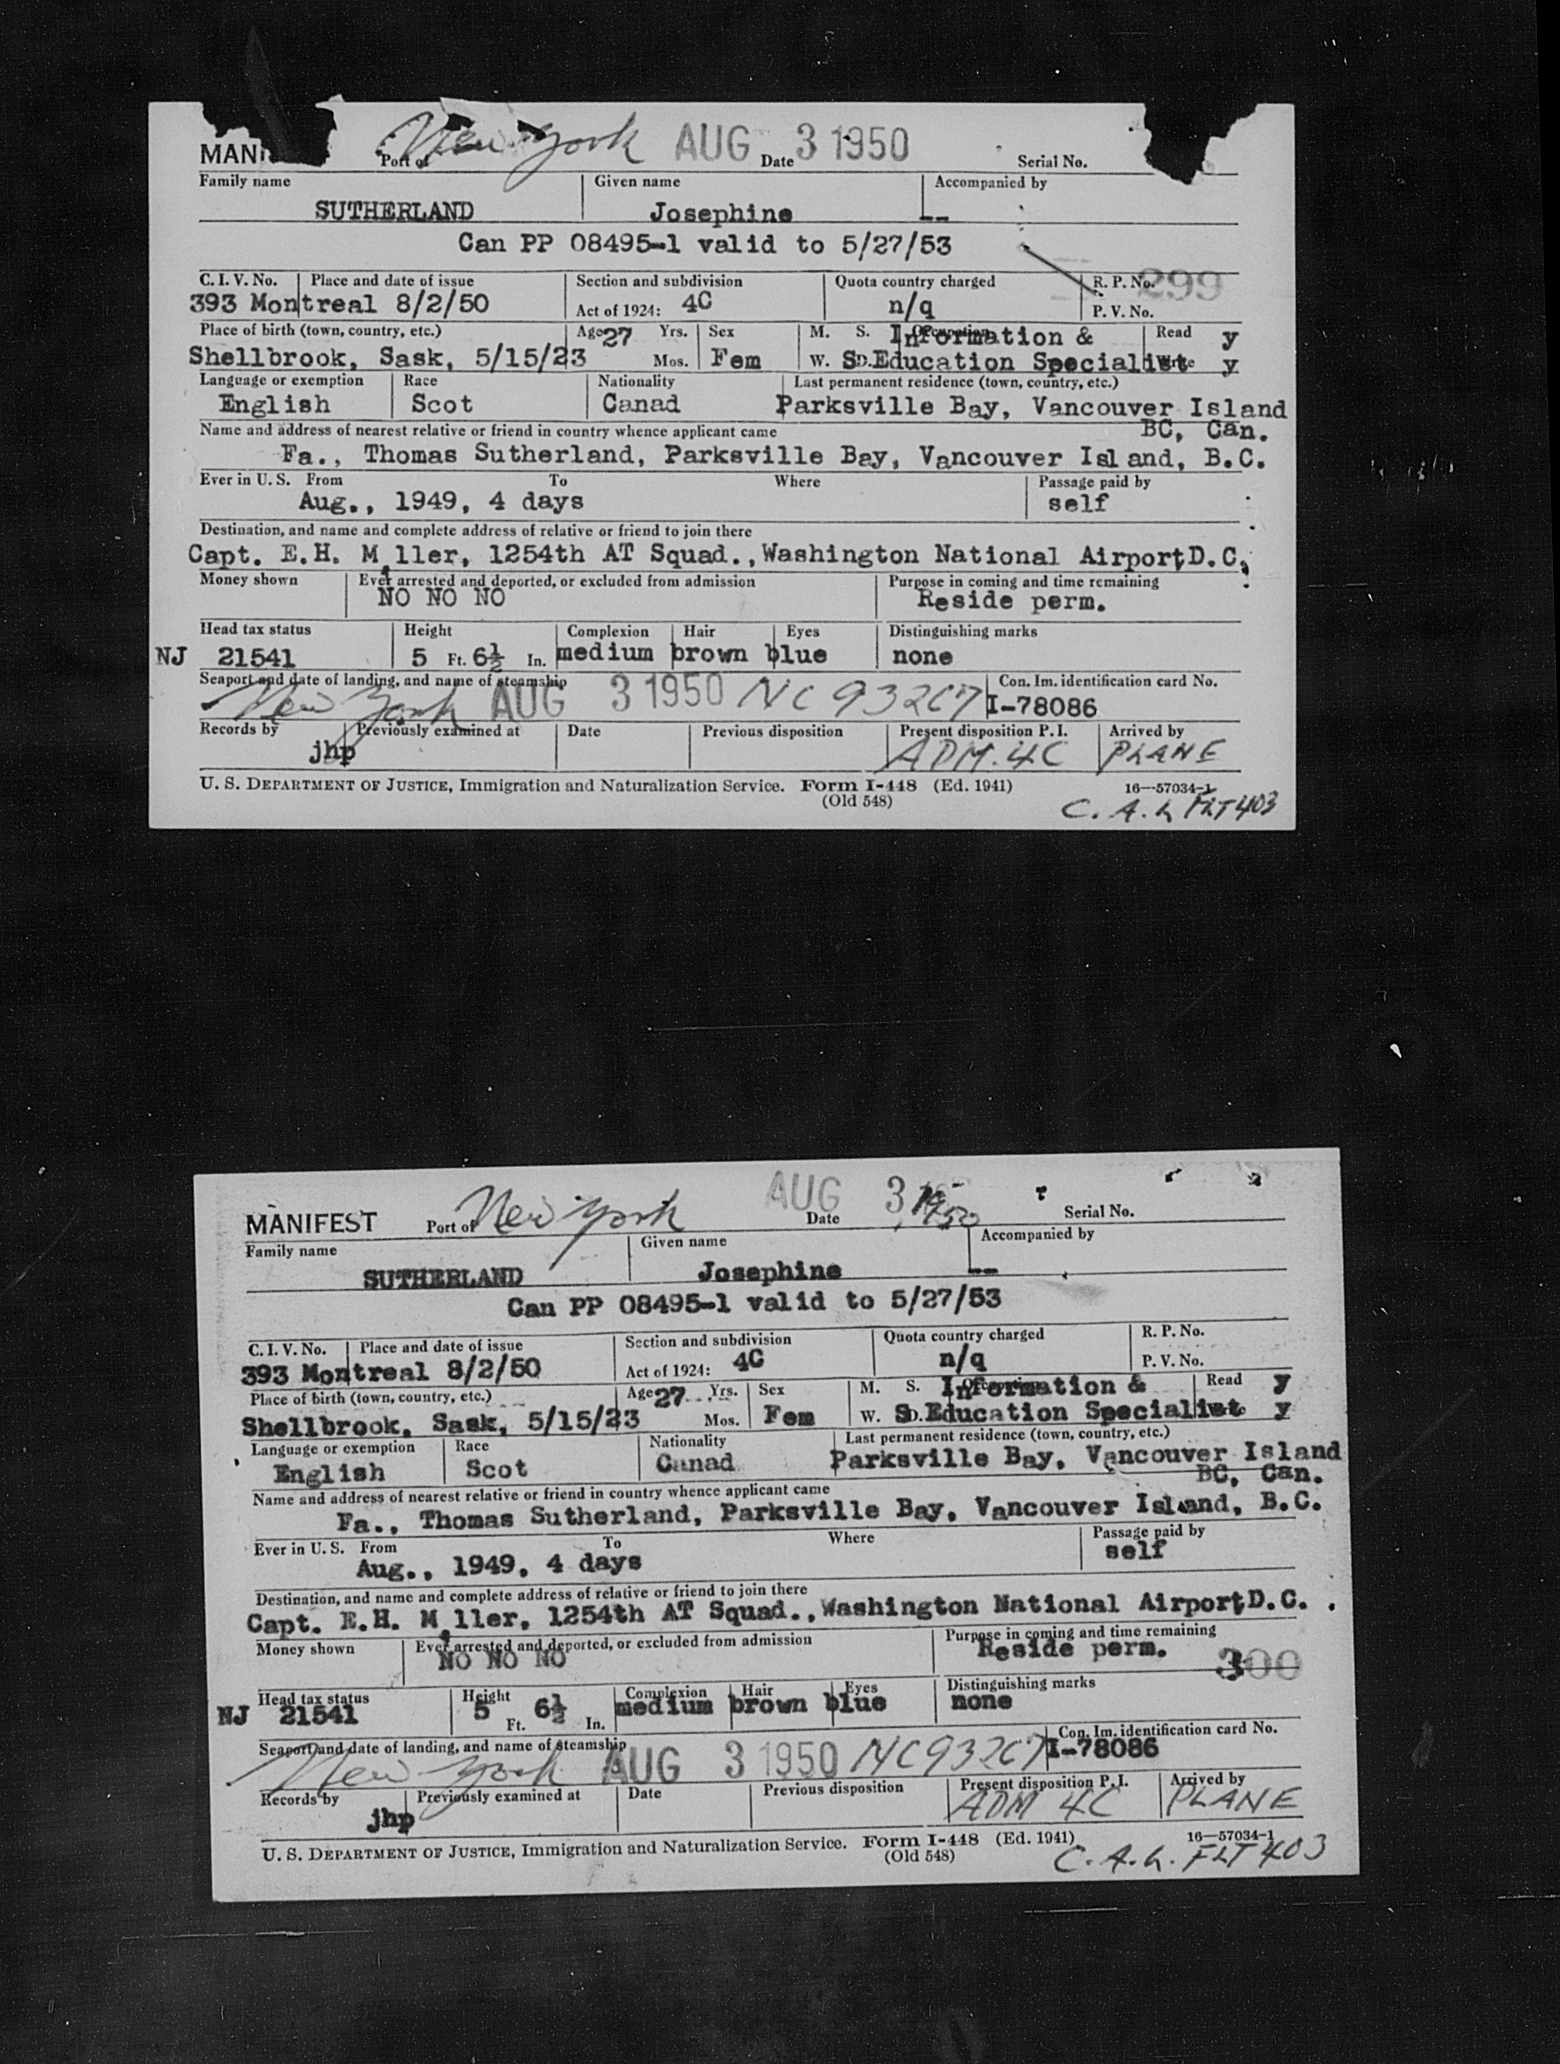 MANI Port of New York AUG Date 3 1950 Serial No.
Family name Given name Accompanied by
SUTHERLAND Josephine --
Can PP 08495-1 valid to 5/27/53
C. I. V. No. Place and date of issue Section and subdivision Quota country charged R. P. No. 299
393 Montreal 8/2/50 Act of 1924: 4C n/q P. V. No.
Place of birth (town, country, etc.) Age 27 Yrs. Sex M. S. Occupation Information & Read y
Shellbrook, Sask, 5/15/23 Mos. Fem W. D. S Education Specialist Write y
Language or exemption Race Nationality Last permanent residence (town, country, etc.)
English Scot Canad Parksville Bay, Vancouver Island
Name and address of nearest relative or friend in country whence applicant came BC, Can.
Fa., Thomas Sutherland, Parksville Bay, Vancouver Island, B.C.
Ever in U. S. From To Where Passage paid by
Aug., 1949, 4 days self
Destination, and name and complete address of relative or friend to join there
Capt. E.H. Miller, 1254th AT Squad., Washington National Airport, D.C.
Money shown Ever arrested and deported, or excluded from admission Purpose in coming and time remaining
NO NO NO Reside perm.
Head tax status Height Complexion Hair Eyes Distinguishing marks
NJ 21541 5 Ft. 6½ In. medium brown blue none
Seaport and date of landing, and name of steamship Con. Im. identification card No.
New York AUG 3 1950 NC 93267 I-78086
Records by Previously examined at Date Previous disposition Present disposition P. I. Arrived by
jhp ADM. 4C PLANE
U. S. DEPARTMENT OF JUSTICE, Immigration and Naturalization Service. Form I-448 (Ed. 1941) 16—57034-1
(Old 548) C. A. L FLT 403
MANIFEST Port of New York AUG Date 3 1950 Serial No.
Family name Given name Accompanied by
SUTHERLAND Josephine --
Can PP 08495-1 valid to 5/27/53
C. I. V. No. Place and date of issue Section and subdivision Quota country charged R. P. No.
393 Montreal 8/2/50 Act of 1924: 4C n/q P. V. No.
Place of birth (town, country, etc.) Age 27 Yrs. Sex M. S. Occupation Information & Read y
Shellbrook, Sask, 5/15/23 Mos. Fem W. D. S Education Specialist Write y
Language or exemption Race Nationality Last permanent residence (town, country, etc.)
English Scot Canad Parksville Bay, Vancouver Island
Name and address of nearest relative or friend in country whence applicant came BC, Can.
Fa., Thomas Sutherland, Parksville Bay, Vancouver Island, B.C.
Ever in U. S. From To Where Passage paid by
Aug., 1949, 4 days self
Destination, and name and complete address of relative or friend to join there
Capt. E.H. Miller, 1254th AT Squad., Washington National Airport, D.C.
Money shown Ever arrested and deported, or excluded from admission Purpose in coming and time remaining
NO NO NO Reside perm. 300
Head tax status Height Complexion Hair Eyes Distinguishing marks
NJ 21541 5 Ft. 6½ In. medium brown blue none
Seaport and date of landing, and name of steamship Con. Im. identification card No.
New York AUG 3 1950 NC 93267 I-78086
Records by Previously examined at Date Previous disposition Present disposition P. I. Arrived by
jhp ADM 4C PLANE
U. S. DEPARTMENT OF JUSTICE, Immigration and Naturalization Service. Form I-448 (Ed. 1941) 16—57034-1
(Old 548) C. A. L. FLT 403